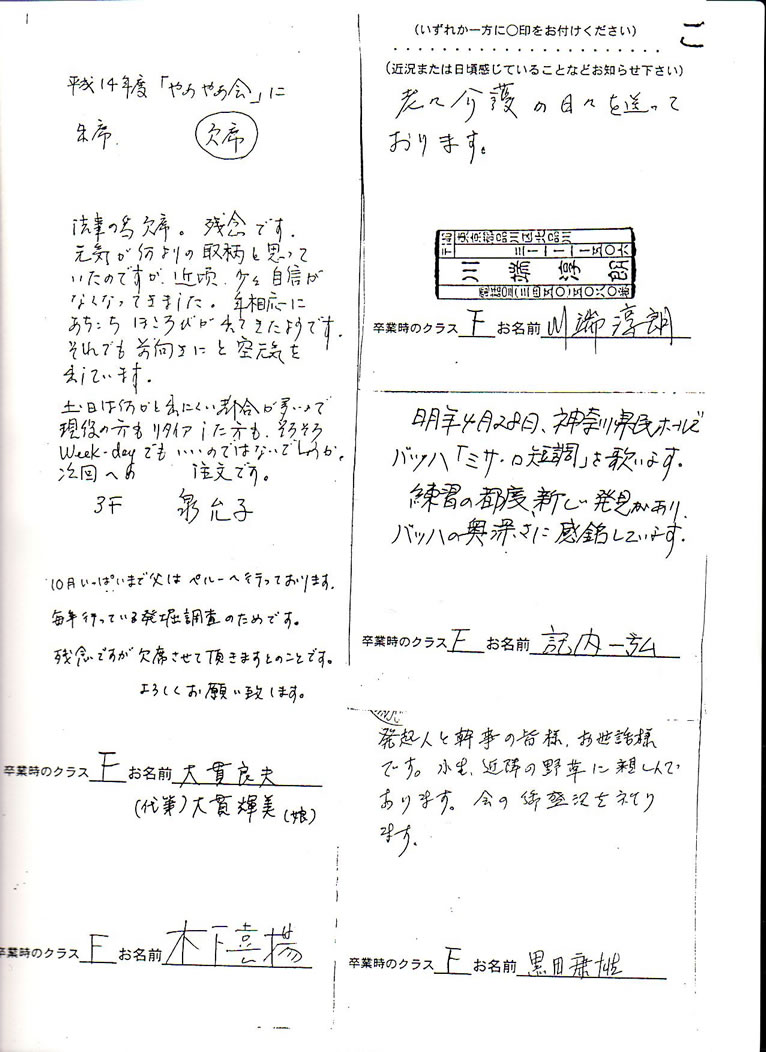 平成14年度「やあやあ会」に
出席 欠席
法事の為欠席。残念です。
元気が何よりの取柄と思って
いたのですが、近頃、少々自信が
なくなってきました。年相応に
あちこちほころびが出てきたようです。
それでも前向きにと空元気を
出しています。
土・日は何かと出にくい都合が多いので
現役の方もリタイアした方も、そろそろ
Week-dayでもいいのではないでしょうか。
次回への 注文です。
3F 泉允子
10月いっぱいまで父はペルーへ行っております。
毎年行っている発掘調査のためです。
残念ですが欠席させて頂きますとのことです。
よろしくお願い致します。
卒業時のクラス F お名前 大貫良夫
(代筆)大貫輝美(娘)
卒業時のクラス F お名前 木下喜揚
(いずれか一方に〇印をお付けください)
ご
(近況または日頃感じていることなどお知らせ下さい)
老々介護の日々を送って
おります。
東京都品川区北品川
川端淳朗
卒業時のクラス F お名前 川端淳朗
明年4月28日、神奈川県民ホールで
バッハ「ミサ・ロ短調」を歌います。
練習の都度、新しい発見があり、
バッハの奥深さに感銘しています。
卒業時のクラス F お名前 記内一弘
発起人と幹事の皆様、お世話様
です。小生、近隣の野草に親しんで
おります。会の御盛況を祈り
ます。
卒業時のクラス F お名前 黒田